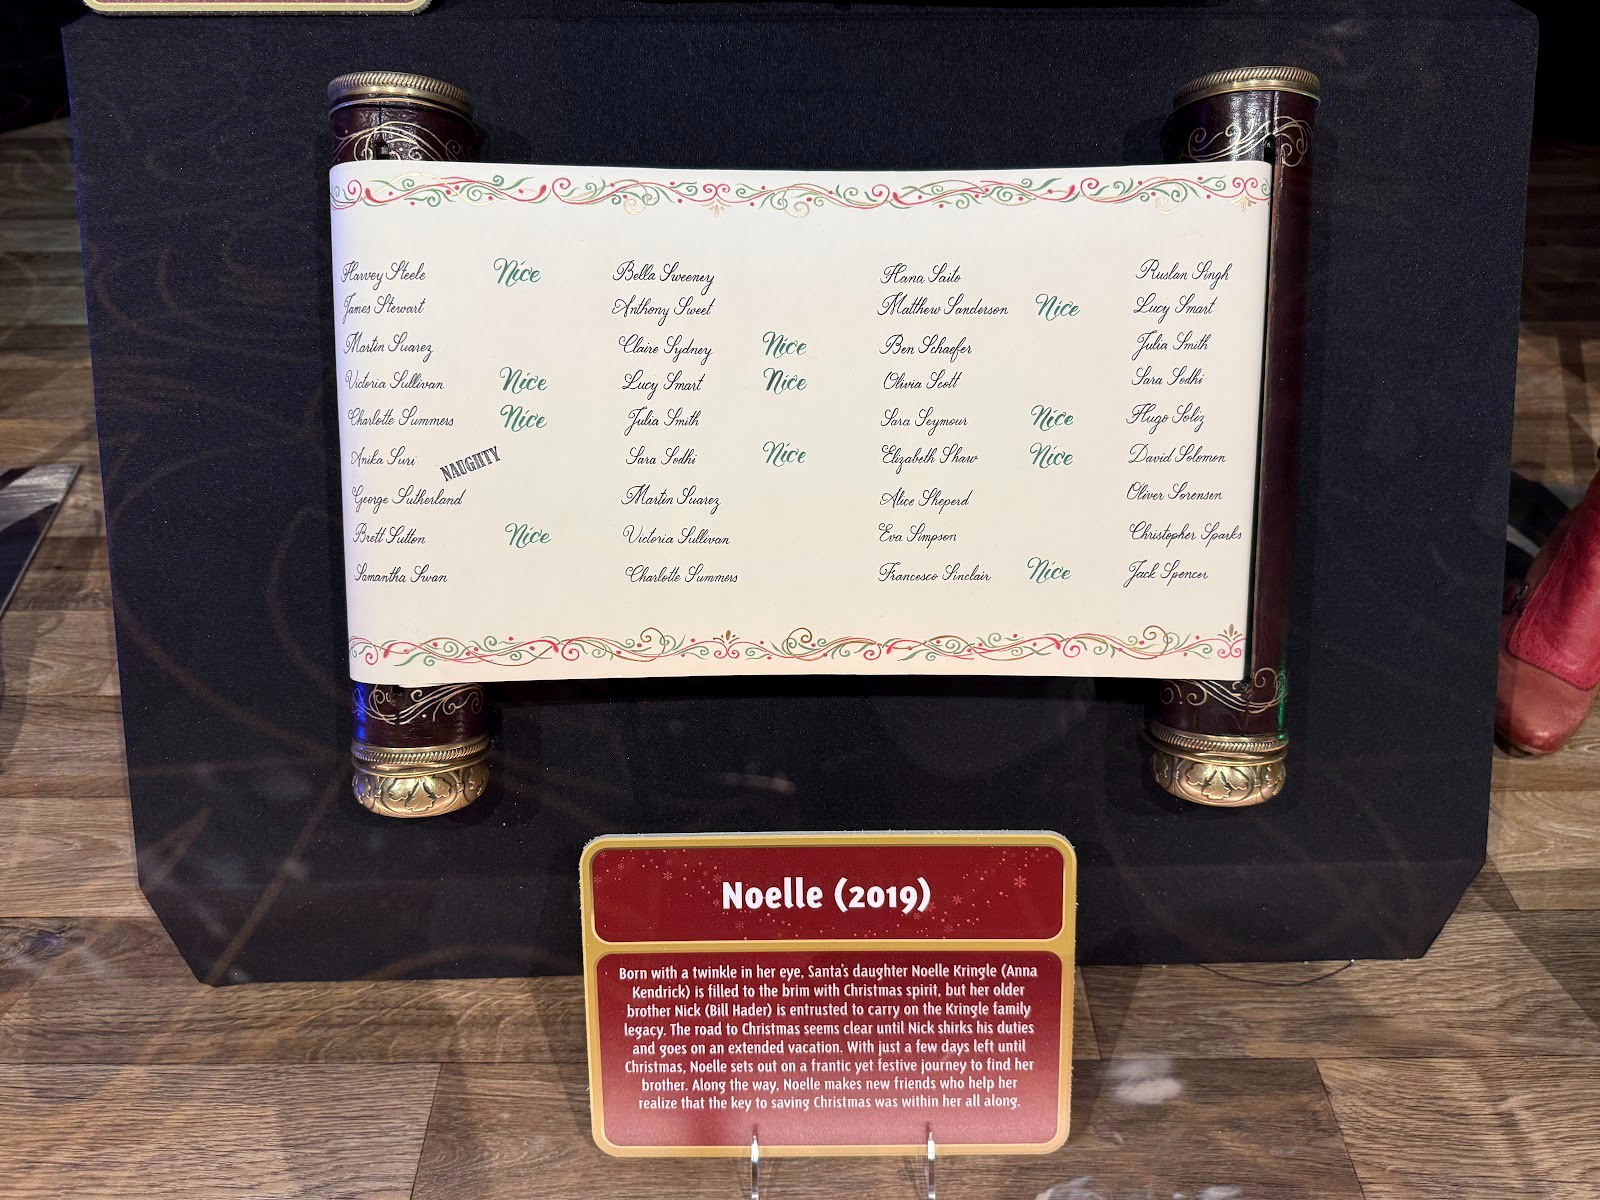 Harvey Steele Nice
James Stewart
Martin Suarez
Victoria Sullivan Nice
Charlotte Summers Nice
Anika Suri NAUGHTY
George Sutherland
Brett Sutton Nice
Samantha Swan
Bella Sweeney
Anthony Sweet
Claire Sydney Nice
Lucy Smart Nice
Julia Smith
Sara Sodhi Nice
Martin Suarez
Victoria Sullivan
Charlotte Summers
Hana Saito
Matthew Sanderson Nice
Ben Schaefer
Olivia Scott
Sara Seymour Nice
Elizabeth Shaw Nice
Alice Sheperd
Eva Simpson
Francesco Sinclair Nice
Ruslan Singh
Lucy Smart
Julia Smith
Sara Sodhi
Hugo Soliz
David Solomon
Oliver Sorensen
Christopher Sparks
Jack Spencer
Noelle (2019)
Born with a twinkle in her eye, Santa's daughter Noelle Kringle (Anna
Kendrick) is filled to the brim with Christmas spirit, but her older
brother Nick (Bill Hader) is entrusted to carry on the Kringle family
legacy. The road to Christmas seems clear until Nick shirks his duties
and goes on an extended vacation. With just a few days left until
Christmas, Noelle sets out on a frantic yet festive journey to find her
brother. Along the way, Noelle makes new friends who help her
realize that the key to saving Christmas was within her all along.